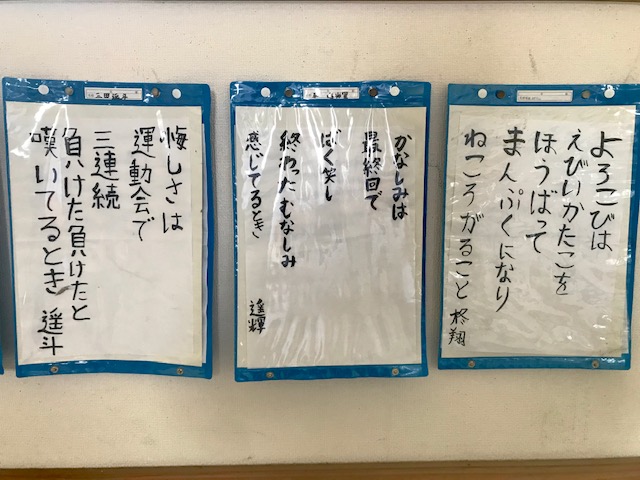 よろこびは
えびいかたこを
ほうばって
まんぷくになり
ねころがること
柊翔
かなしみは
最終回で
ばく笑し
終わった むなしみ
感じてるとき
遥輝
三田遥斗
悔しさは
運動会で
三連続
負けた負けたと
嘆いてるとき
遥斗